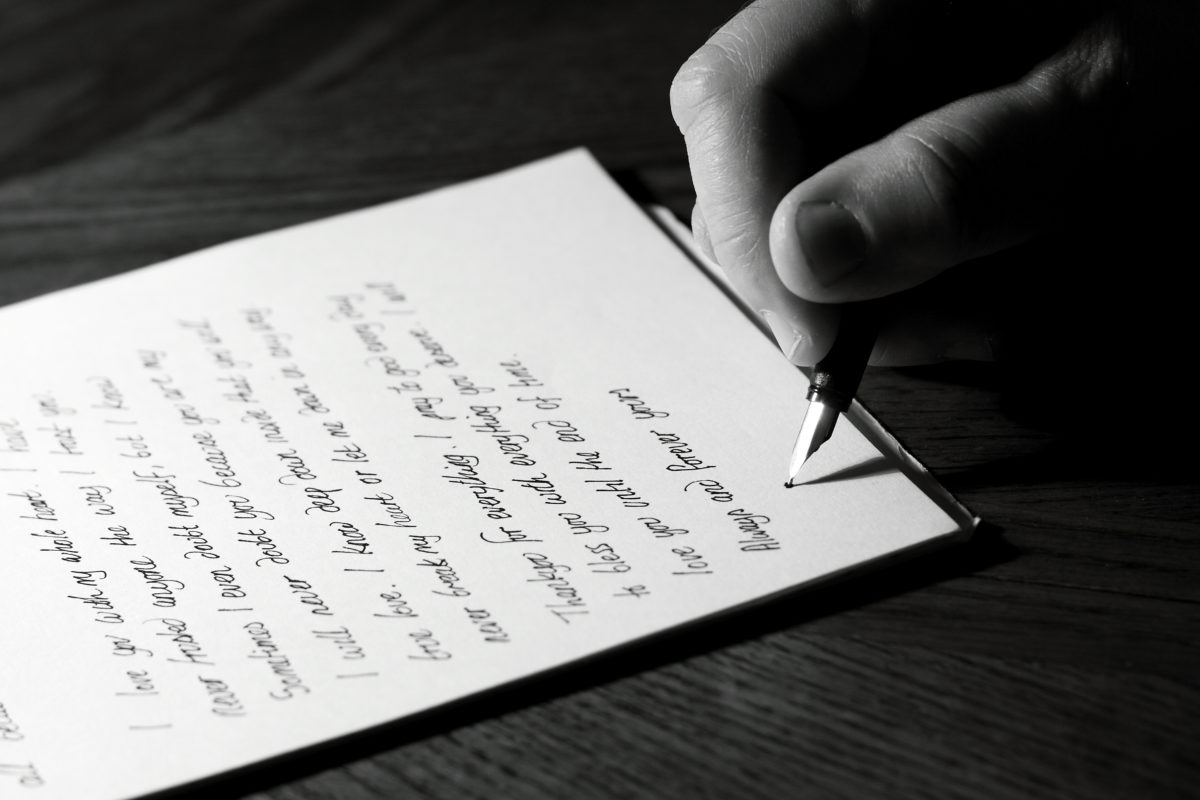 all
I love you with my whole heart. I have
Never trusted anyone the way I trust you.
Sometimes I even doubt myself, but I know
I will never doubt you because you are my
true love. I know deep down inside that you will
never break my heart or let me down in any way.
Thankyou for everything. I pray to god every day
to bless you with everything you deserve. I will
love you until the end of time.
Always and forever yours